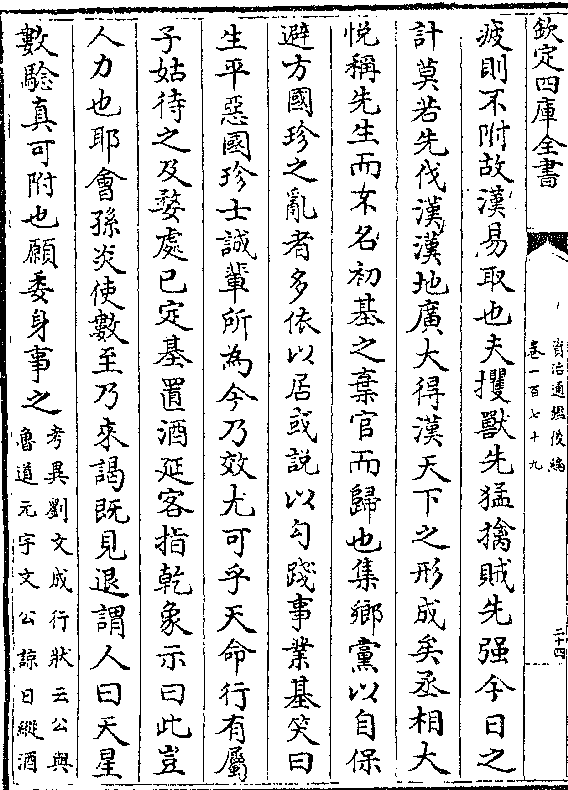 欽定四庫全書
資治通鑑後編
卷一百七十九
二十四
疲則不附故漢易取也夫攫獸先猛擒賊先强今日之
計莫若先伐漢漢地廣大得漢天下之形成矣丞相大
悅稱先生而不名初基之棄官而歸也集鄉黨以自保
避方國珍之亂者多依以居或說以勾踐事業基笑曰
生平惡國珍士誠輩所為今乃效尤可乎天命行有屬
子姑待之及婺處已定基置酒延客指乾象示曰此豈
人力也耶會孫炎使數至乃來謁既見退謂人曰天星
數驗真可附也願委身事之
考異劉文成行狀云公與
魯道元宇文公諒日縱酒